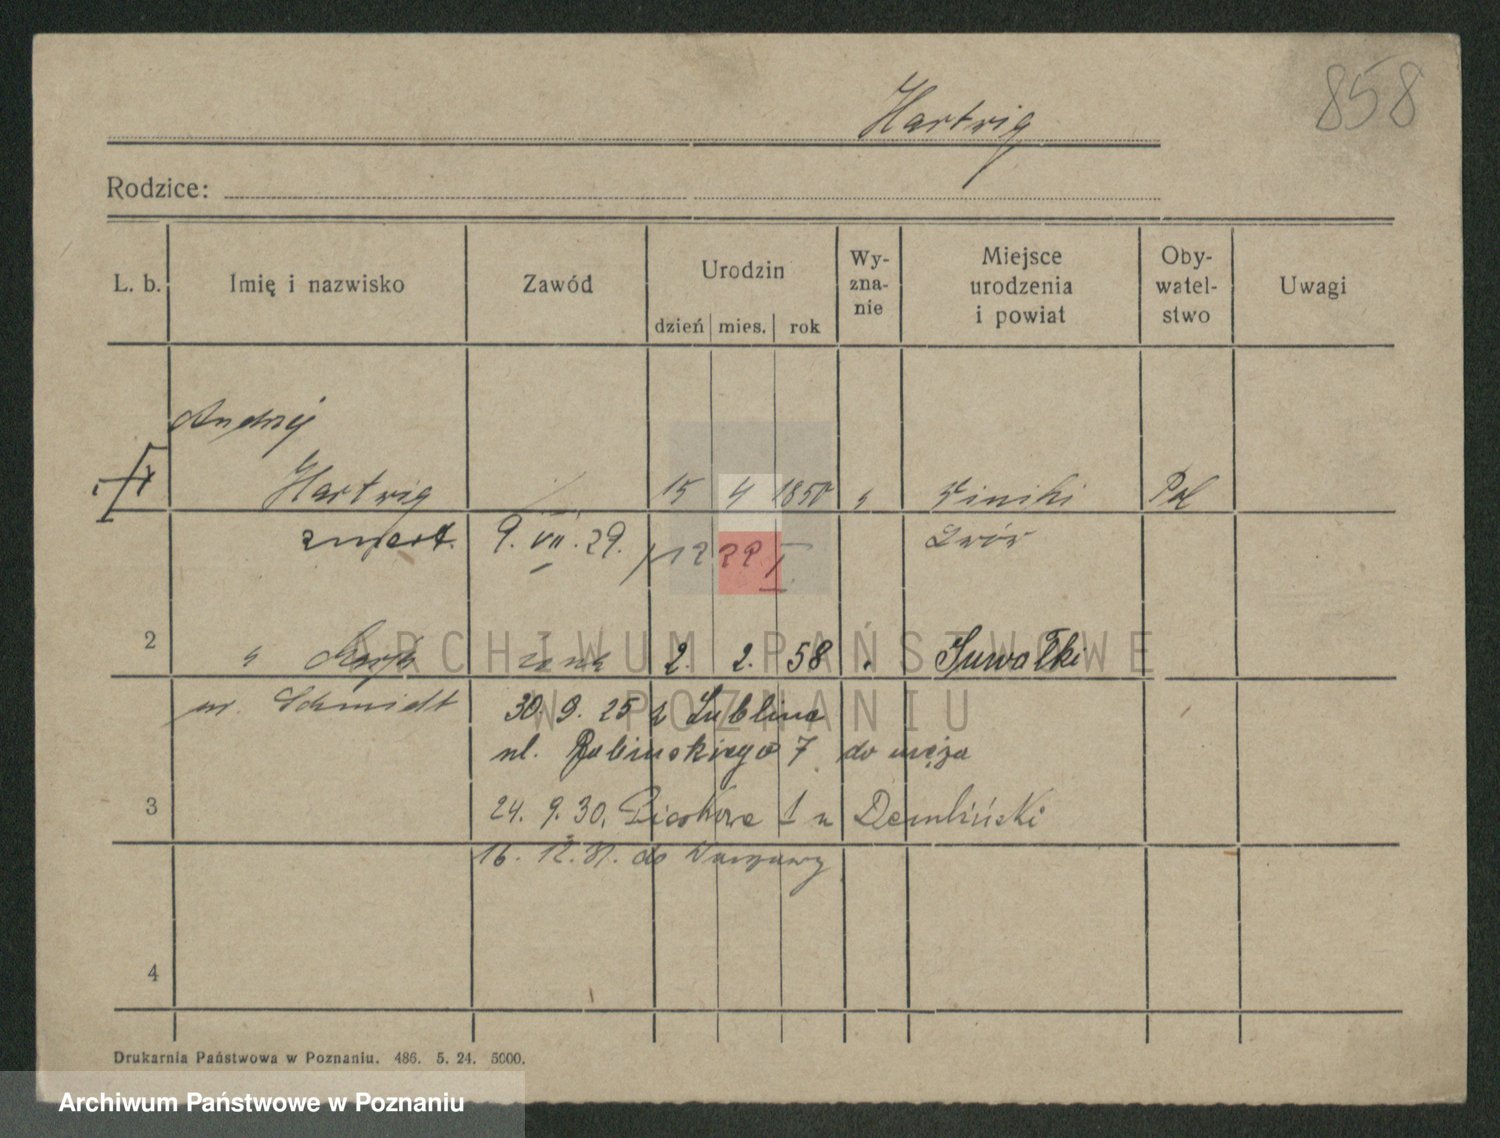 858
Hartwig
Rodzice:
L. b. Imię i nazwisko Zawód Urodzin dzień mies. rok Wy-zna-nie Miejsce urodzenia i powiat Oby-watel-stwo Uwagi
Andrzej
Hartwig 15 4 1850 " Winiki Pol
zmarł. 9. VII. 29. Lwów
2 " żona 2. 2. 58 " Suwałki
ur. Schmidt 30. 9. 25 z Lublina
ul. 7 do męża
3 24. 9. 30. Piaskowa 1 u Dembiński
16. 12. 31. do Warszawy
4
Drukarnia Państwowa w Poznaniu. 486. 5. 24. 5000.
ARCHIWUM PAŃSTWOWE
W POZNANIU
Archiwum Państwowe w Poznaniu